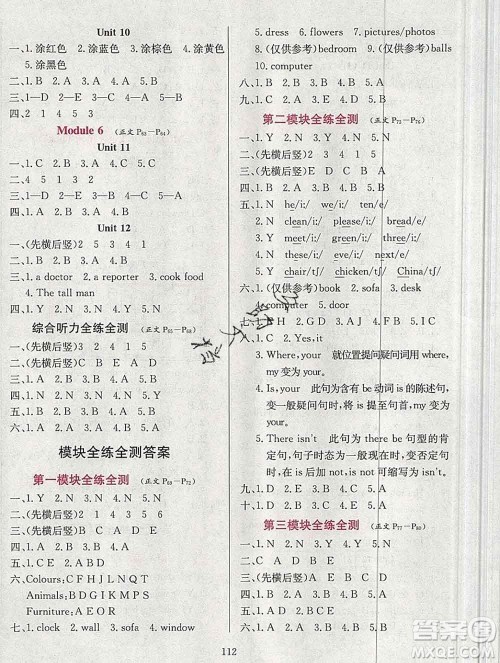 Unit 10
一、1.涂红色 2.涂蓝色 3.涂棕色 4.涂黄色
5.涂黑色
二、1.B 2.A 3.A 4.B 5.A
三、1—D 2—E 3—A 4—B 5—C
四、2 1 4 5 3
Module 6 (正文 P63—P64)
Unit 11
一、1.C 2.B 3.D 4.A
二、4 5 1 3 2
三、1—B 2—C 3—A 4—E 5—D
四、1.A 2.B 3.A 4.B
Unit 12
一、(先横后竖)2 5 3 4 1
二、1.B 2.A 3.B 4.A 5.A
三、1.a doctor 2.a reporter 3.cook food
4.The tall man
四、1.C 2.D 3.A 4.B
综合听力全练全测 (正文 P65—P68)
一、(先横后竖)3 2 4 5 1
二、(先横后竖)C B E A D
三、1.N 2.Y 3.N 4.Y 5.N
四、1.A 2.B 3.B 4.B 5.A
五、1.B 2.B 3.A 4.B 5.A
六、1.A 2.B 3.A 4.B 5.B
模块全练全测答案
第一模块全练全测 (正文 P69—P72)
一、1.Y 2.N 3.N 4.Y 5.N
二、(先横后竖)B C A D E
三、(先横后竖)5 3 2 1 4
四、1.A 2.B 3.B 4.A 5.A
五、(先横后竖)A C B E D
六、Colours: C F H J L N Q T
Animals: B D G I K M P S
Furniture: A E O R
七、1.clock 2.wall 3.sofa 4.window
5.dress 6.flowers 7.pictures/photos
8.(仅供参考)bedroom 9.(仅供参考)balls
10.computer
八、1.B 2.A 3.A 4.A 5.B
九、1.C 2.D 3.E 4.A 5.B
第二模块全练全测 (正文 P72—P76)
一、1.Y 2.N 3.Y 4.N 5.N
二、(先横后竖)3 4 1 5 2
三、1.B 2.B 3.B 4.A 5.B
四、1.B 2.B 3.A 4.A 5.B
五、1.N he/i:/ we/i:/ me/i:/
2.N clean/i:/ please/i:/ bread/e/
3.Y meet/i:/ green/i:/ three/i:/
4.N desk/e/ she/i:/ bed/e/
5.Y chair/tʃ/ chicken/tʃ/ China/tʃ/
六、(仅供参考)1.book 2.sofa 3.window
4.computer 5.door
1.C 2.Yes, it
3.Where, your 就位置提问疑问词用 where,
my 变为 your。
4.Is, your 此句为含有 be 动词 is 的陈述句,
变一般疑问句时,将 is 提至句首,my 变
为 your。
5.There isn't 此句为 there be 句型的肯
定句,变否定句时在 is 后加 not,is not 可
缩写成 isn't。
九、1.D 2.E 3.A 4.C 5.B
第三模块全练全测 (正文 P77—P80)
一、1.N 2.Y 3.Y 4.N 5.N
二、(先横后竖)5 3 2 4 1
三、1.A 2.B 3.A 4.A 5.B
四、1.B 2.A 3.B 4.B 5.A
112
答案圈
MXQE.COM